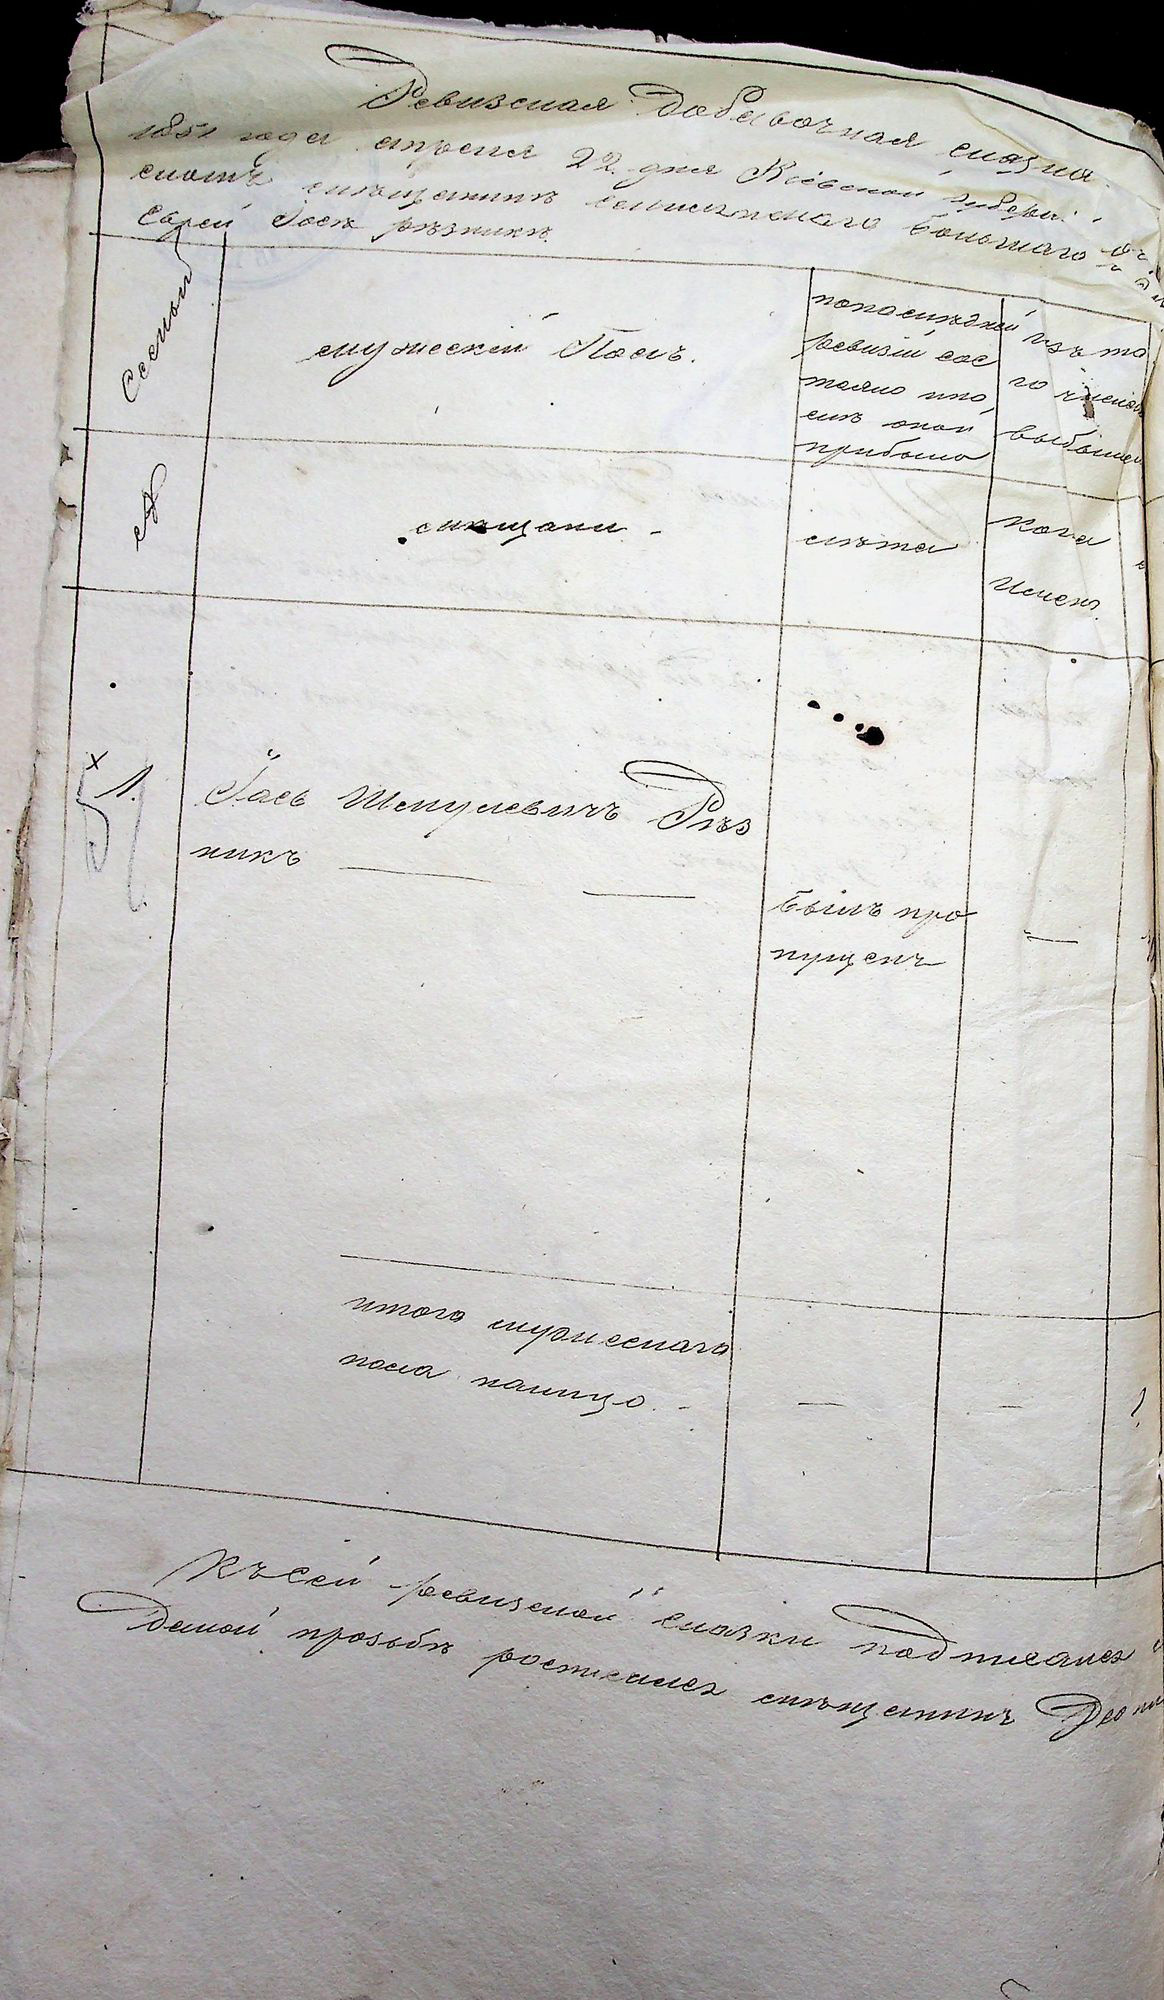 Ревизская добавочная сказка
1851 года апреля 22 дня Кіевской губерніи
мѣщанинъ большаго
Еврей Іось рѣзникъ
Семьи
мужескій Полъ.
попослѣдней
ревизіи сос
тояло ипо
слѣ оной
прибыло
изъ то
го числа
выбыло
№
мѣщани
лѣта
кога
имен
1.
Іось Шмулевичъ Рѣз
никъ
былъ про
пущенъ
итого мужескаго
пола налицо
1
Къ сей ревизской сказки подписался
данной прозьбѣ росписался мѣщанинъ